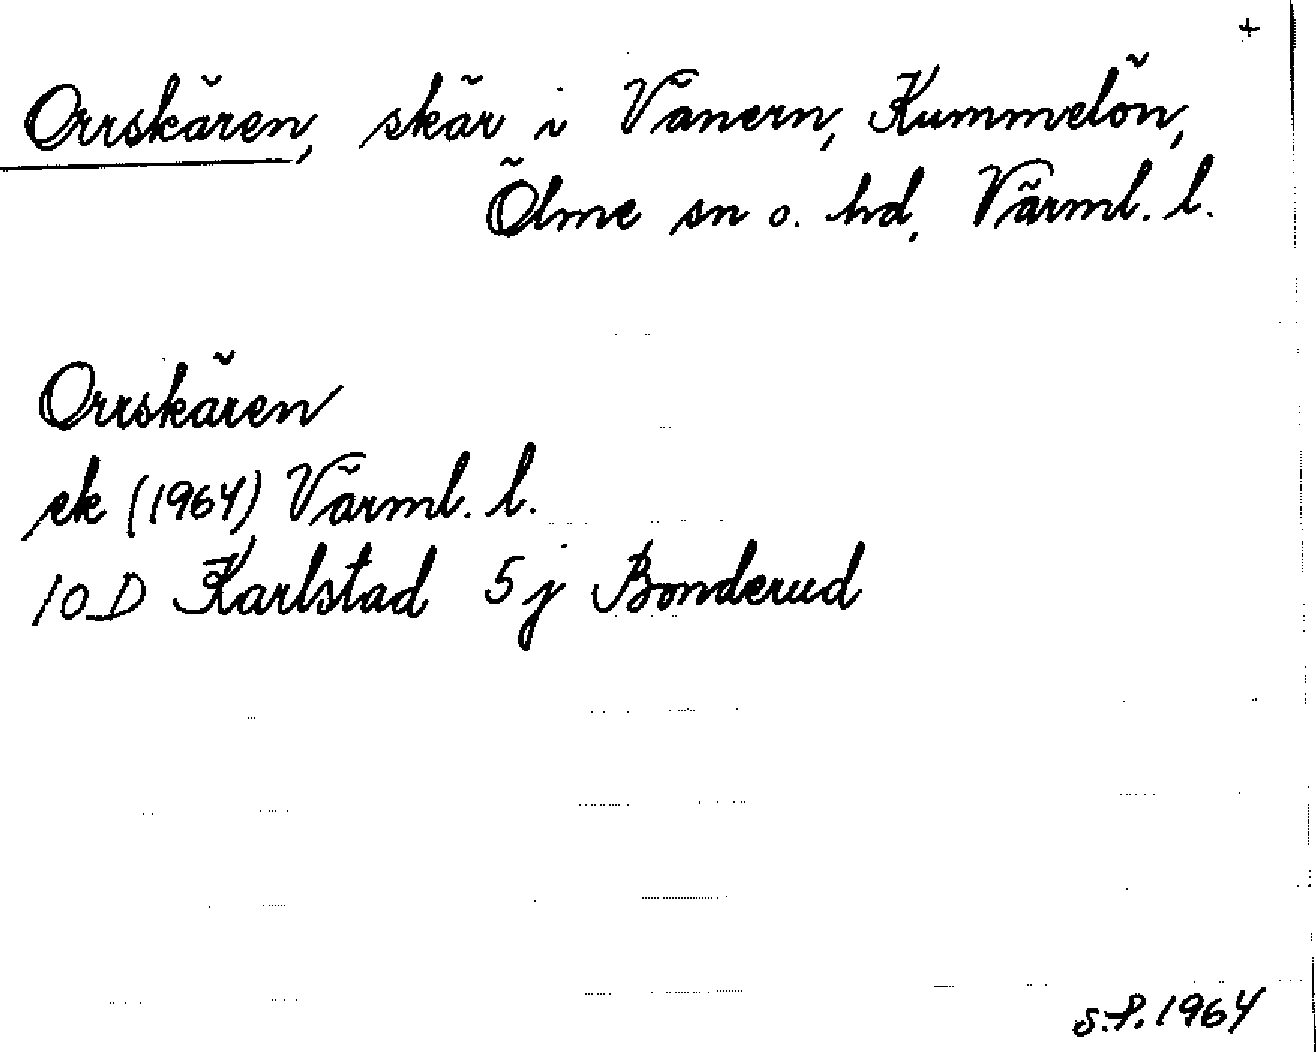 +
Orrskären, skär i Vänern, Kummelön,
Ölme sn o. hd, Värml. l.
Orrskären
ek (1964) Värml. l.
10D Karlstad 5j Bonderud
S.P. 1964